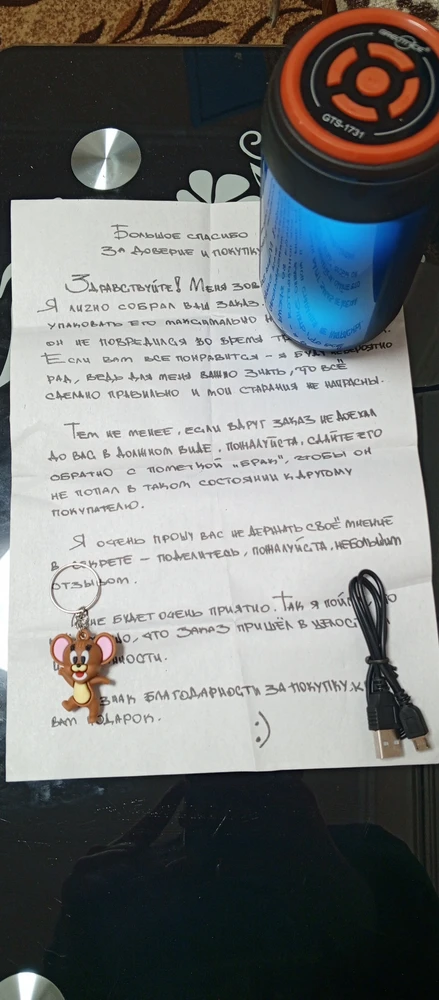 GTS-1731
Большое спасибо
За доверие и покупку
Здравствуйте! Меня зов
Я лично собрал ваш заказ.
упаковать его максимально
он не повредился во время
Если вам всё понравится – я буду невероятно
рад, ведь для меня важно знать, что всё
сделано правильно и мои старания не напрасны.
Тем не менее, если вдруг заказ не доехал
до вас в должном виде, пожалуйста, сдайте его
обратно с пометкой „брак", чтобы он
не попал в таком состоянии к другому
покупателю.
Я очень прошу вас не держать своё мнение
в секрете – поделитесь, пожалуйста, небольшим
отзывом.
не будет очень приятно. Так я пойм
но, что заказ пришёл в целос
ности.
знак благодарности за покупку,
вам подарок.
:)